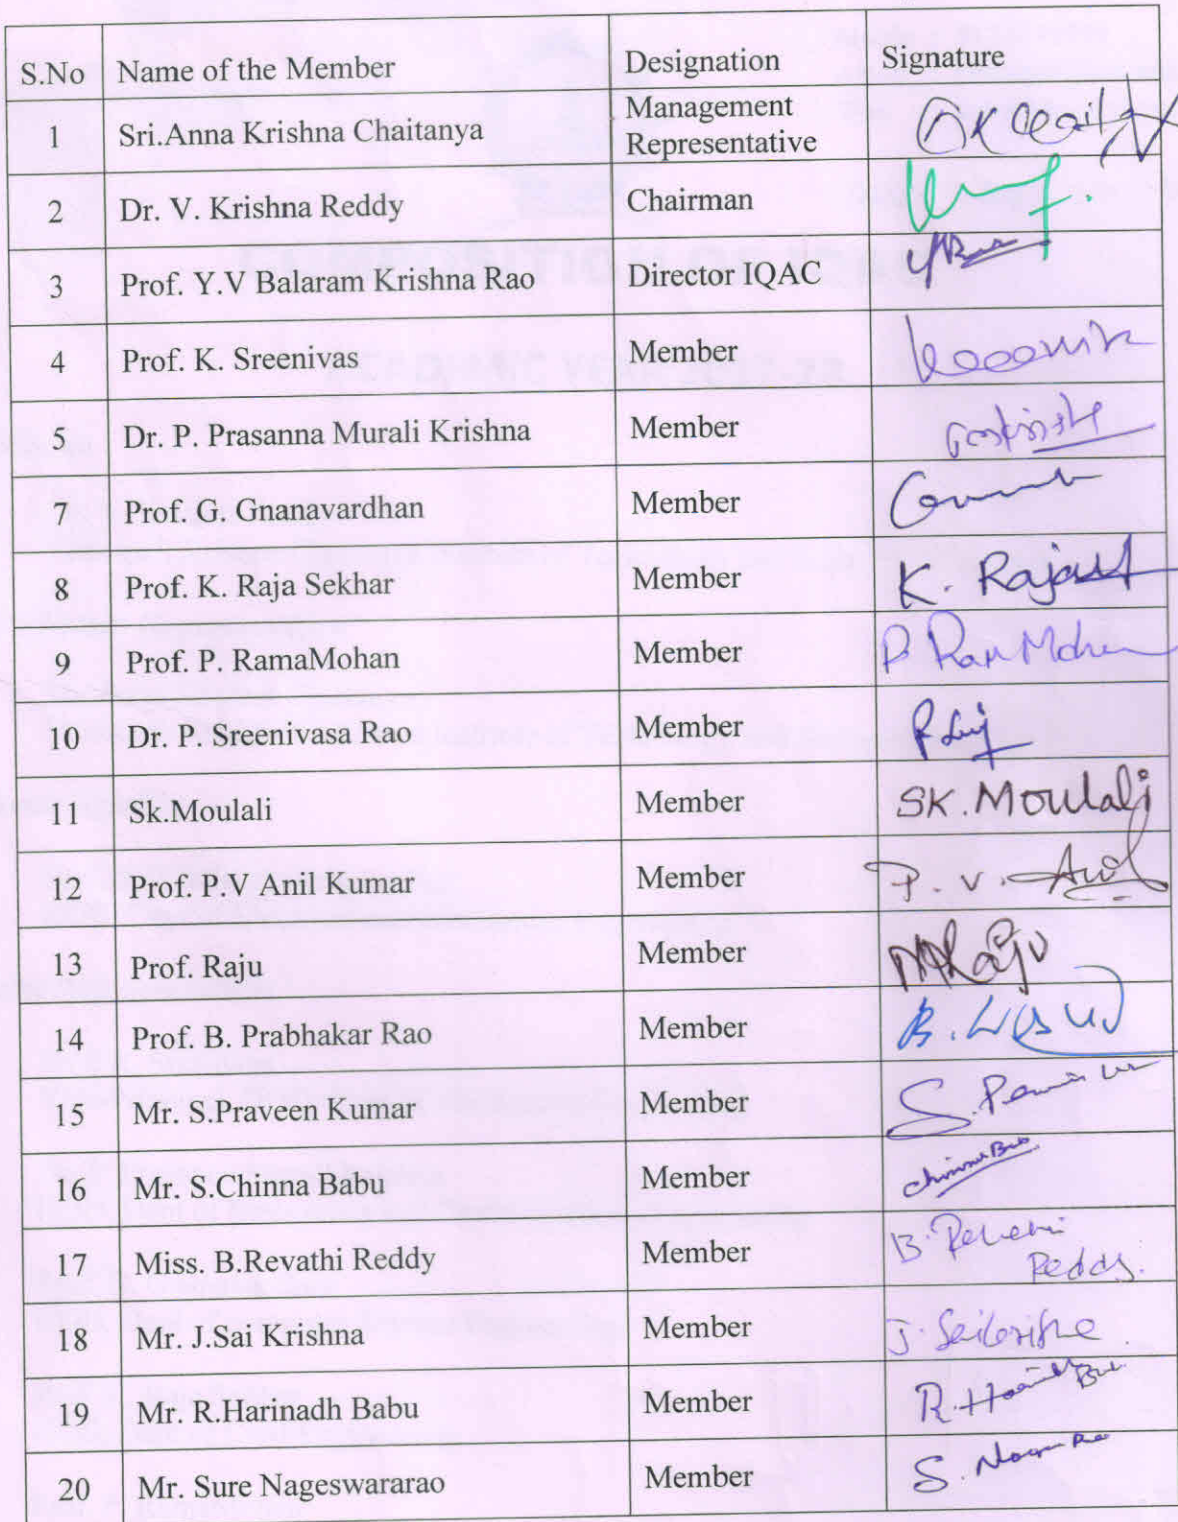 S.No Name of the Member Designation Signature
1 Sri.Anna Krishna Chaitanya Management Representative
2 Dr. V. Krishna Reddy Chairman
3 Prof. Y.V Balaram Krishna Rao Director IQAC
4 Prof. K. Sreenivas Member
5 Dr. P. Prasanna Murali Krishna Member
7 Prof. G. Gnanavardhan Member
8 Prof. K. Raja Sekhar Member K.
9 Prof. P. RamaMohan Member P. Ram Mohan
10 Dr. P. Sreenivasa Rao Member
11 Sk.Moulali Member SK.Moulali
12 Prof. P.V Anil Kumar Member P. V. Anil
13 Prof. Raju Member
14 Prof. B. Prabhakar Rao Member B.
15 Mr. S.Praveen Kumar Member S.
16 Mr. S.Chinna Babu Member
17 Miss. B.Revathi Reddy Member B. Revathi
Reddy.
18 Mr. J.Sai Krishna Member J. Saikrishna
19 Mr. R.Harinadh Babu Member R.
20 Mr. Sure Nageswararao Member S.